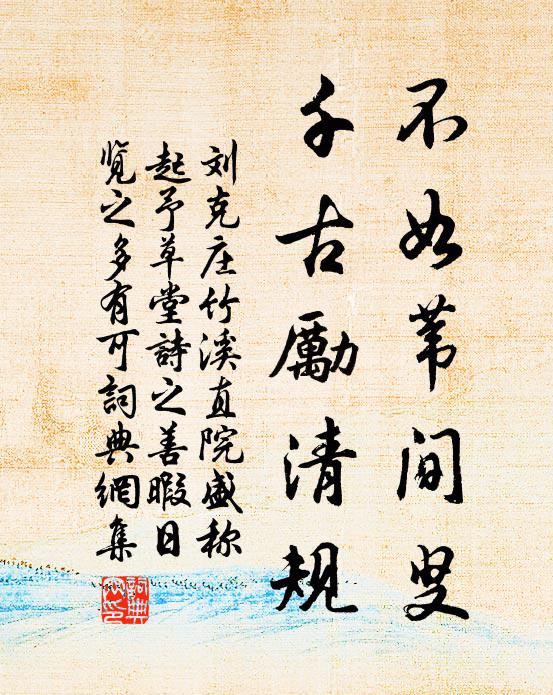 不如苇间叟
千古励清规
刘克庄竹溪直院盛称
起予草堂詩之善暇日
览之多有可詞典網集
詞典